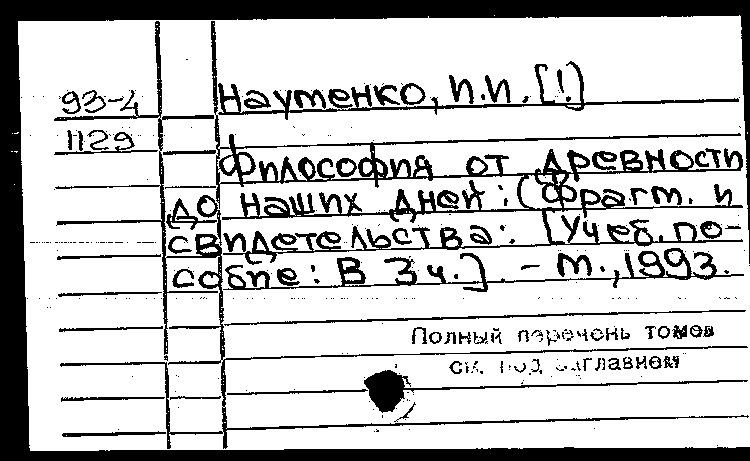 93-4 Науменко, И.И. [!]
1129
Философия от древности
до наших дней: (Фрагм. и
свидетельства: [Учеб. по-
собие: В 3 ч.] . - М., 1993.
Полный перечень томов
см. под заглавием